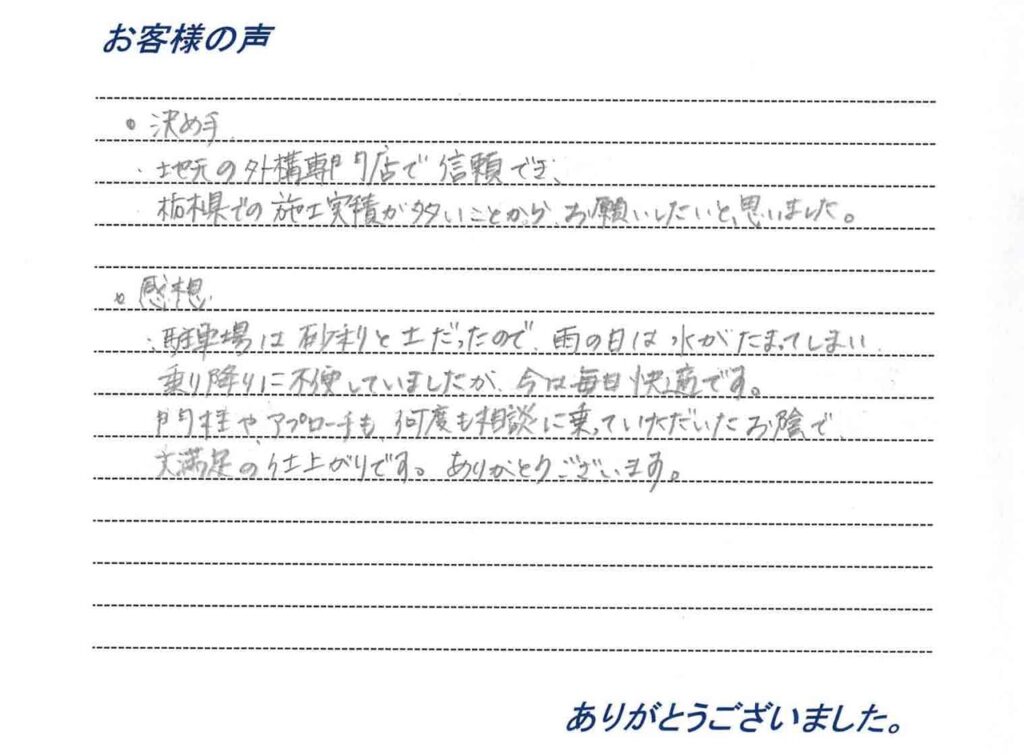 お客様の声
。決め手
・地元の外構専門店で信頼でき、
栃木県での施工実績が多いことから、お願いしたいと思いました。
。感想
・駐車場は砂利と土だったので、雨の日は水がたまってしまい
乗り降りに不便していましたが、今は毎日快適です。
門柱や、アプローチも、何度も相談に乗っていただいたお陰で、
大満足の仕上がりです。ありがとうございます。
ありがとうございました。